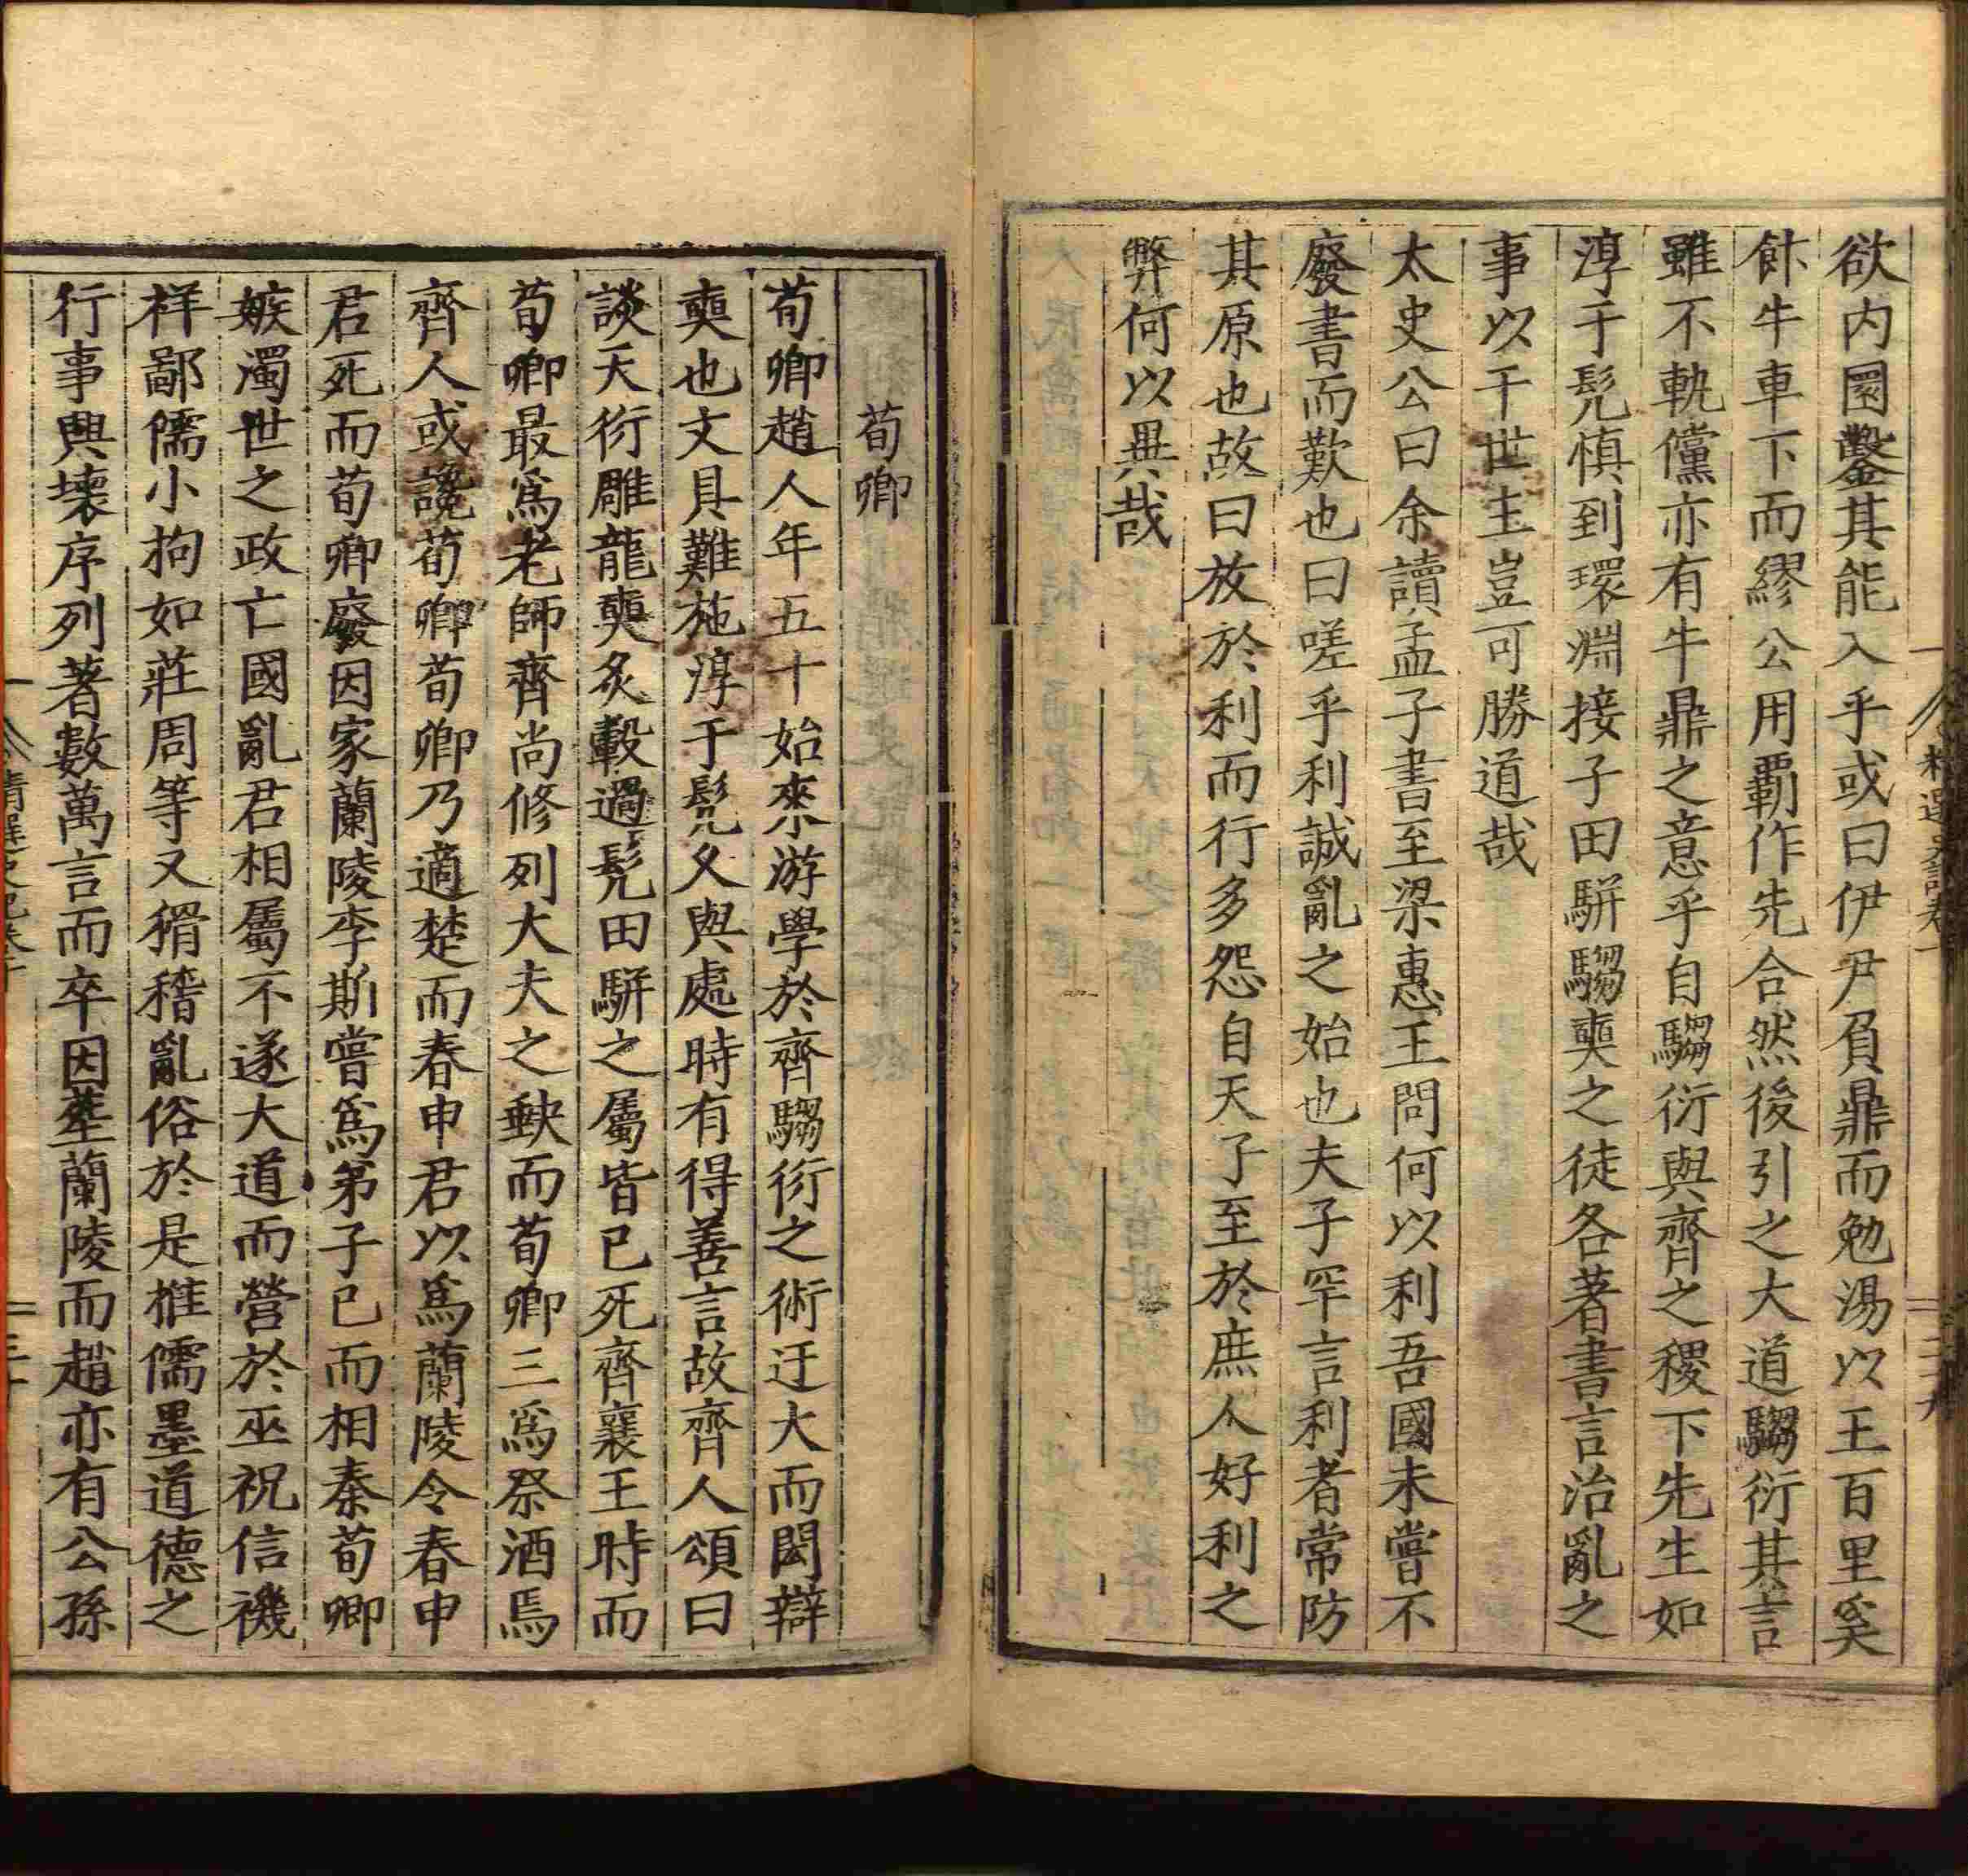 欲内圜鑿其能入乎或曰伊尹負鼎而勉湯以王百里奚
飰牛車下而繆公用覇作先合然後引之大道騶衍其言
雖不軌儻亦有牛鼎之意乎自騶衍與齊之稷下先生如
淳于髡慎到環淵接子田駢騶奭之徒各著書言治亂之
事以干世主豈可勝道哉
太史公曰余讀孟子書至梁惠王問何以利吾國未嘗不
廢書而歎也曰嗟乎利誠亂之始也夫子罕言利者常防
其原也故曰放於利而行多怨自天子至於庶人好利之
弊何以異哉
荀卿
荀卿趙人年五十始來游學於齊騶衍之術迂大而閎辯
奭也文具難施淳于髡久與處時有得善言故齊人頌曰
談天衍雕龍奭炙轂過髡田駢之屬皆已死齊襄王時而
荀卿最爲老師齊尚修列大夫之缺而荀卿三爲祭酒焉
齊人或讒荀卿荀卿乃適楚而春申君以爲蘭陵令春申
君死而荀卿廢因家蘭陵李斯嘗爲弟子已而相秦荀卿
嫉濁世之政亡國亂君相屬不遂大道而營於巫祝信禨
祥鄙儒小拘如莊周等又猾稽亂俗於是推儒墨道德之
行事興壞序列著數萬言而卒因塟蘭陵而趙亦有公孫